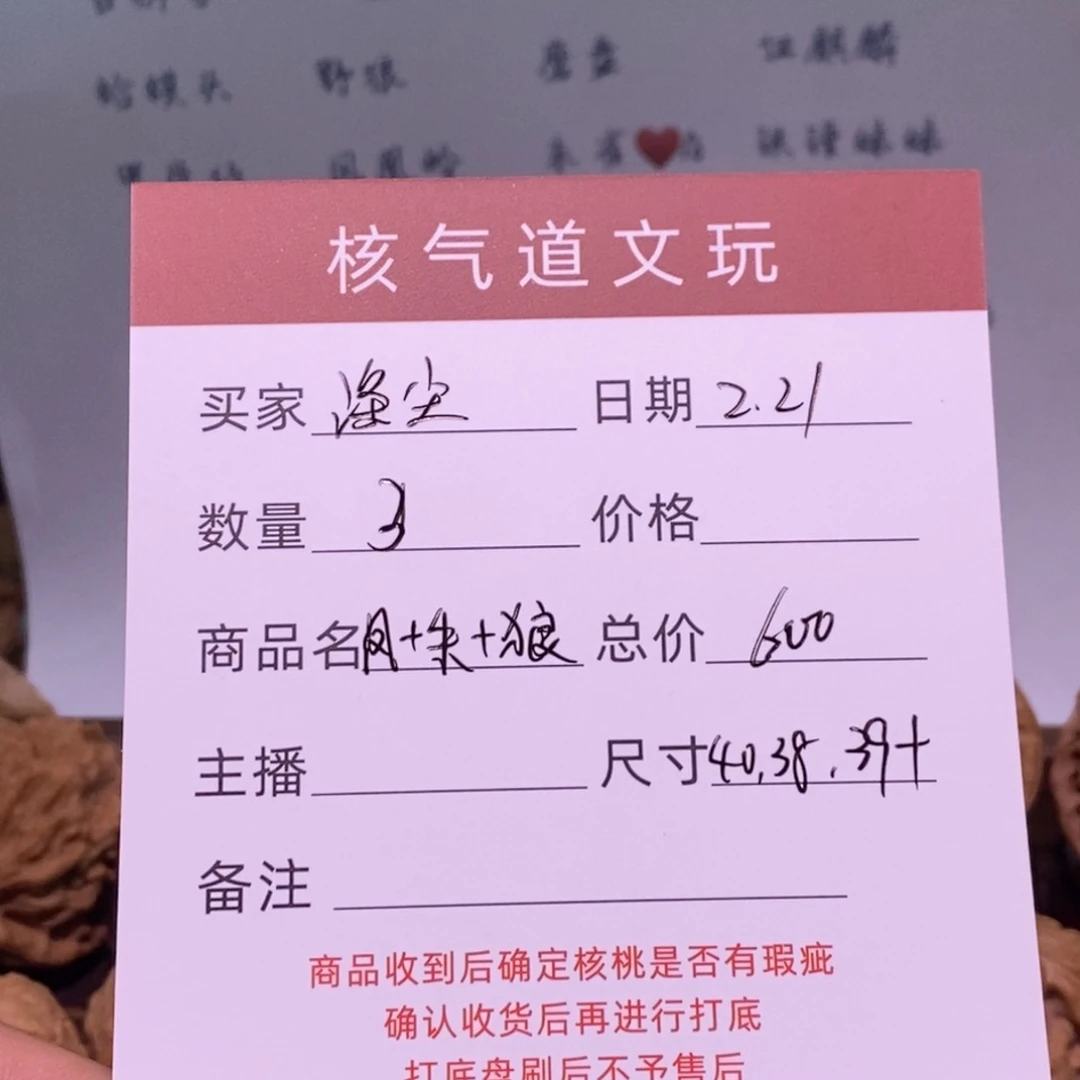 野狼 座盘 麒麟
朱雀 妹妹
核气道文玩
买家 日期 2.21
数量 3 价格
商品名 凤+朱+狼 总价 600
主播 尺寸 40.38.39+
备注
商品收到后确定核桃是否有瑕疵
确认收货后再进行打底
打底盘刷后不予售后